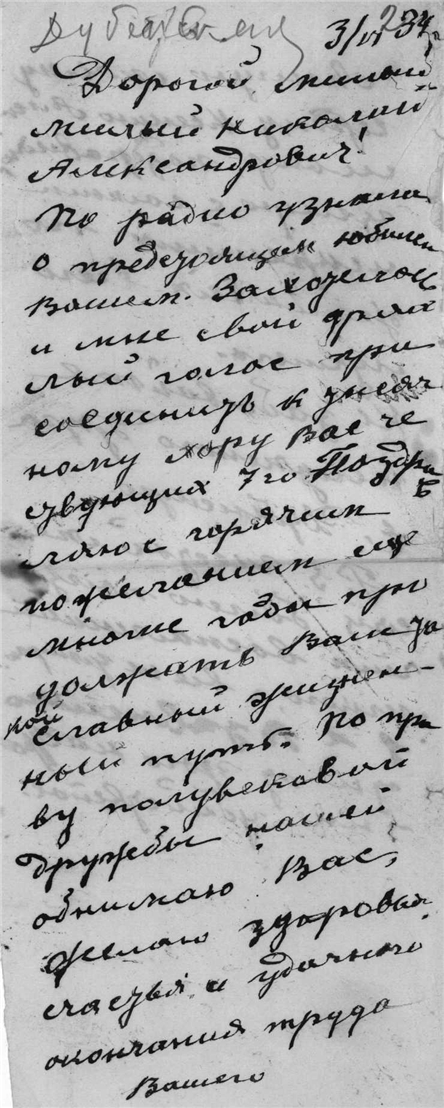 3/VI 34
Дорогой, милый
милый Николай
Александрович!
По радио узнала
о предстоящем юбилее
Вашем. Захотелось
и мне свой дрях
лый голос при
соединить к тысяч
ному хору Вас че
ствующих 7го Поздра
вляю с горячим
пожеланием еще
многие годы про
должать Вам та
кой
славный жизнен-
ный путь. По пра
ву полувековой
дружбы нашей
обнимаю Вас,
желаю здоровья
счастья и удачного
окончания труда
Вашего